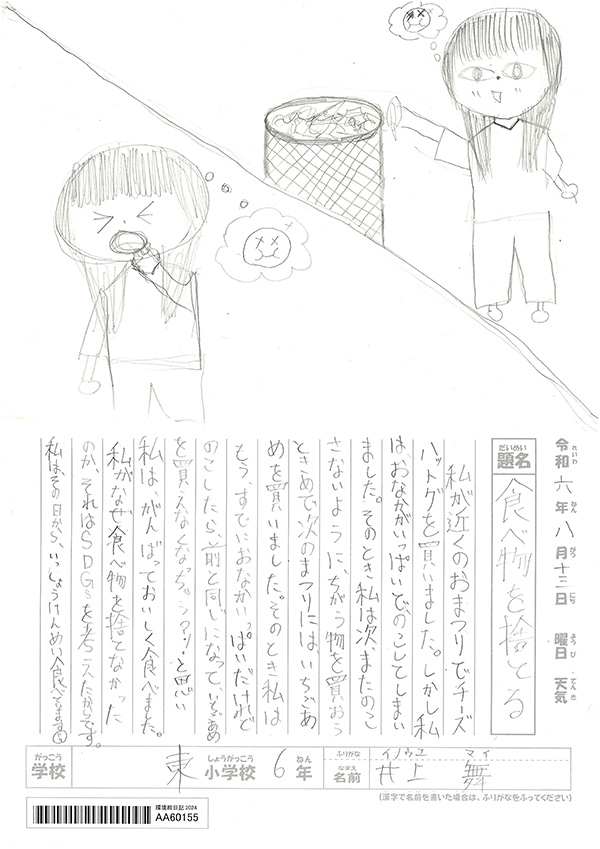 令和六年八月十三日 曜日 天気
れいわ ねん がつ にち ようび てんき
だいめい
題名
食べ物を捨てる
私が近くのおまつりでチーズ
ハットグを買いました。しかし私
は、おなかがいっぱいで、のこしてしまい
ました。そのとき私は次、またのこ
さないように、ちがう物を買おう
ときめて次のまつりには、いちごあ
めを買いました。そのとき私は
もう、すでにおなかいっぱいだけれど
のこしたら前と同じになって、いちごあめ
を買えなくなっちゃう?!と思い
私は、がんばっておいしく食べました。
私がなぜ食べ物を捨てなかった
のか、それはSDGsを考えたからです。
私は、その日から、いっしょうけんめい食べてます
がっこう
学校
東
しょうがっこう
小学校
6
ねん
年
ふりがな
イノウエ マイ
なまえ
名前
井上 舞
(漢字で名前を書いた場合は、ふりがなをふってください)
環境絵日記2024
AA60155